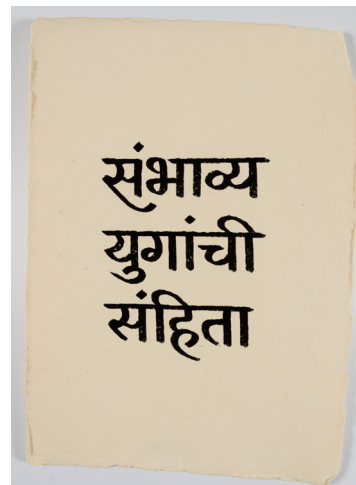 संभाव्य
युगांची
संहिता